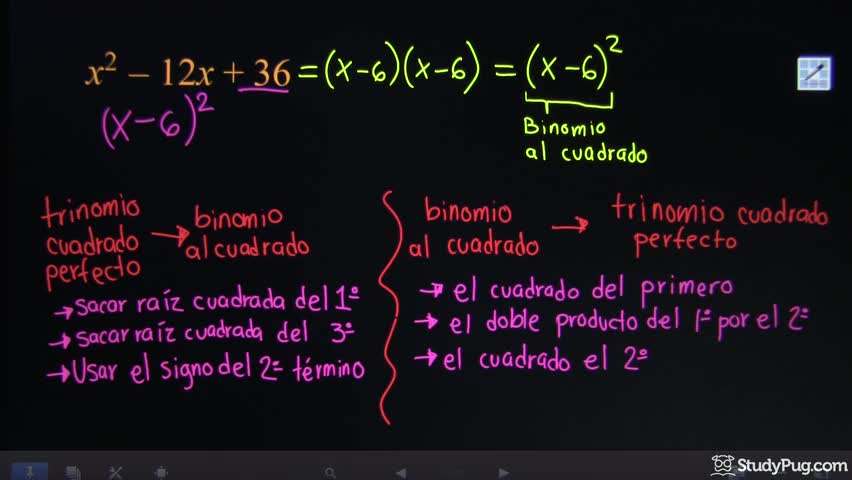 x² – 12x + 36 = (x-6)(x-6) = (x-6)²
(x-6)²
Binomio
al cuadrado
trinomio
cuadrado
perfecto
→ binomio
al cuadrado
→ sacar raíz cuadrada del 1º
→ sacar raíz cuadrada del 3º
→ Usar el signo del 2º término
binomio
al cuadrado
→ trinomio cuadrado
perfecto
→ el cuadrado del primero
→ el doble producto del 1º por el 2º
→ el cuadrado el 2º
StudyPug.com